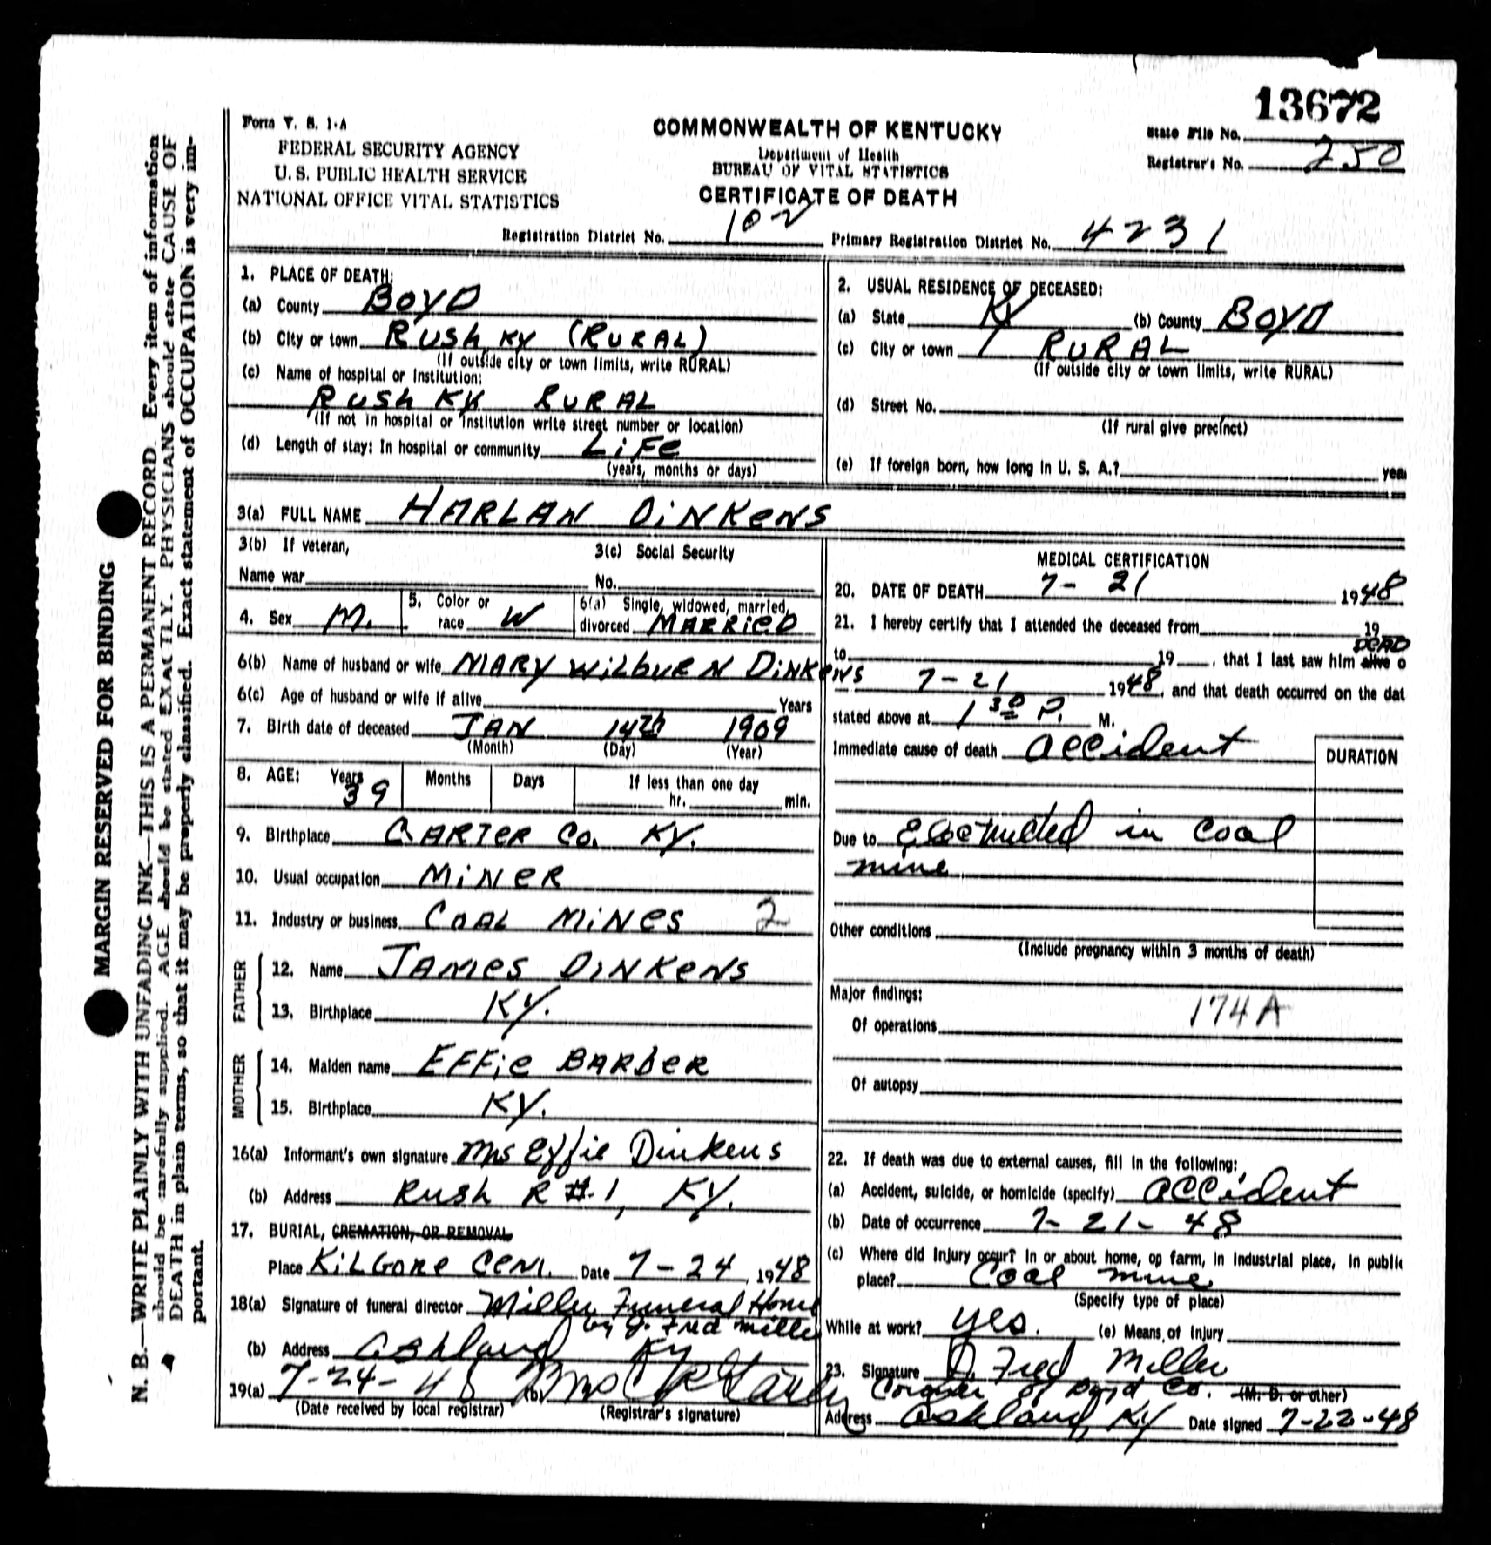 13672
Form V. S. 1-A
FEDERAL SECURITY AGENCY
U. S. PUBLIC HEALTH SERVICE
NATIONAL OFFICE VITAL STATISTICS
COMMONWEALTH OF KENTUCKY
Department of Health
BUREAU OF VITAL STATISTICS
CERTIFICATE OF DEATH
State File No.
Registrar's No. 250
Registration District No. 102 Primary Registration District No. 4231
1. PLACE OF DEATH:
(a) County BOYD
(b) City or town RUSH KY (RURAL)
(If outside city or town limits, write RURAL)
(c) Name of hospital or institution:
RUSH KY RURAL
(If not in hospital or institution write street number or location)
(d) Length of stay: In hospital or community LIFE
(years, months or days)
2. USUAL RESIDENCE OF DECEASED:
(a) State KY (b) County BOYD
(c) City or town RURAL
(If outside city or town limits, write RURAL)
(d) Street No.
(If rural give precinct)
(e) If foreign born, how long in U. S. A.? yea
3(a) FULL NAME HARLAN DINKENS
3(b) If veteran,
Name war
3(c) Social Security
No.
4. Sex M.
5. Color or
race W
6(a) Single, widowed, married,
divorced MARRIED
6(b) Name of husband or wife MARY WILBURN DINKENS
6(c) Age of husband or wife if alive Years
7. Birth date of deceased JAN 14th 1909
(Month) (Day) (Year)
8. AGE: Years 39 Months Days If less than one day
hr. min.
9. Birthplace CARTER CO. KY.
10. Usual occupation MINER
11. Industry or business COAL MINES 2
FATHER
12. Name JAMES DINKENS
13. Birthplace KY.
MOTHER
14. Maiden name EFFIE BARBER
15. Birthplace KY.
16(a) Informant's own signature Mrs Effie Dinkens
(b) Address RUSH R #1, KY.
17. BURIAL, CREMATION, OR REMOVAL
Place KILGORE CEM. Date 7-24, 1948
18(a) Signature of funeral director Miller Funeral Home
by J. Fred Miller
(b) Address Ashland Ky
19(a) 7-24-48 (b) Mrs
(Date received by local registrar) (Registrar's signature)
MEDICAL CERTIFICATION
20. DATE OF DEATH 7-21 1948
21. I hereby certify that I attended the deceased from 19
to 19 , that I last saw him alive o
DEAD
7-21 1948, and that death occurred on the dat
stated above at 1 30 P. M.
Immediate cause of death accident
DURATION
Due to Electrocuted in coal
mine
Other conditions
(Include pregnancy within 3 months of death)
Major findings:
174A
Of operations
Of autopsy
22. If death was due to external causes, fill in the following:
(a) Accident, suicide, or homicide (specify) accident
(b) Date of occurrence 7-21-48
(c) Where did injury occur? In or about home, op farm, in industrial place, in public
place? Coal mine
(Specify type of place)
While at work? yes. (e) Means of Injury
23. Signature J. Fred Miller
Coroner of Boyd Co. (M. D. or other)
Address Ashland, Ky Date signed 7-22-48
MARGIN RESERVED FOR BINDING
N. B.—WRITE PLAINLY WITH UNFADING INK—THIS IS A PERMANENT RECORD. Every item of information
should be carefully supplied. AGE should be stated EXACTLY. PHYSICIANS should state CAUSE OF
DEATH in plain terms, so that it may be properly classified. Exact statement of OCCUPATION is very im-
portant.